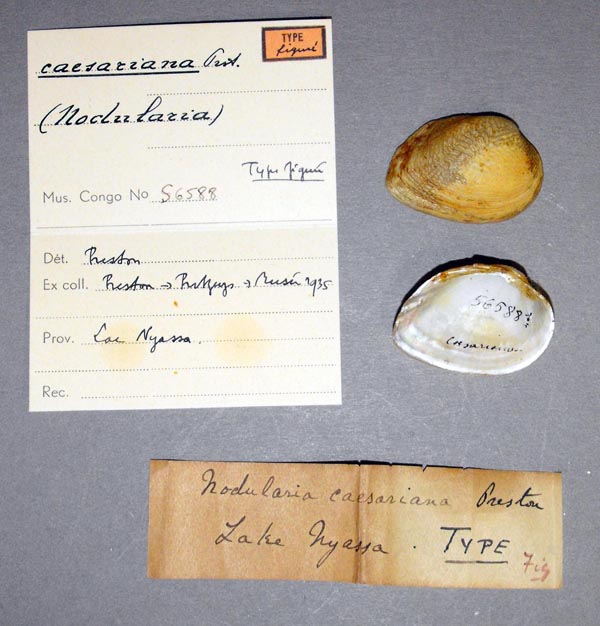 TYPE
figuré
caesariana Prst.
(Nodularia)
Type figuré
Mus. Congo No 56588
Dét. Preston
Ex coll. Preston → → Musée 1935
Prov. Lac Nyassa.
Rec.
56588
caesariana
Nodularia caesariana Preston
Lake Nyassa. TYPE Fig